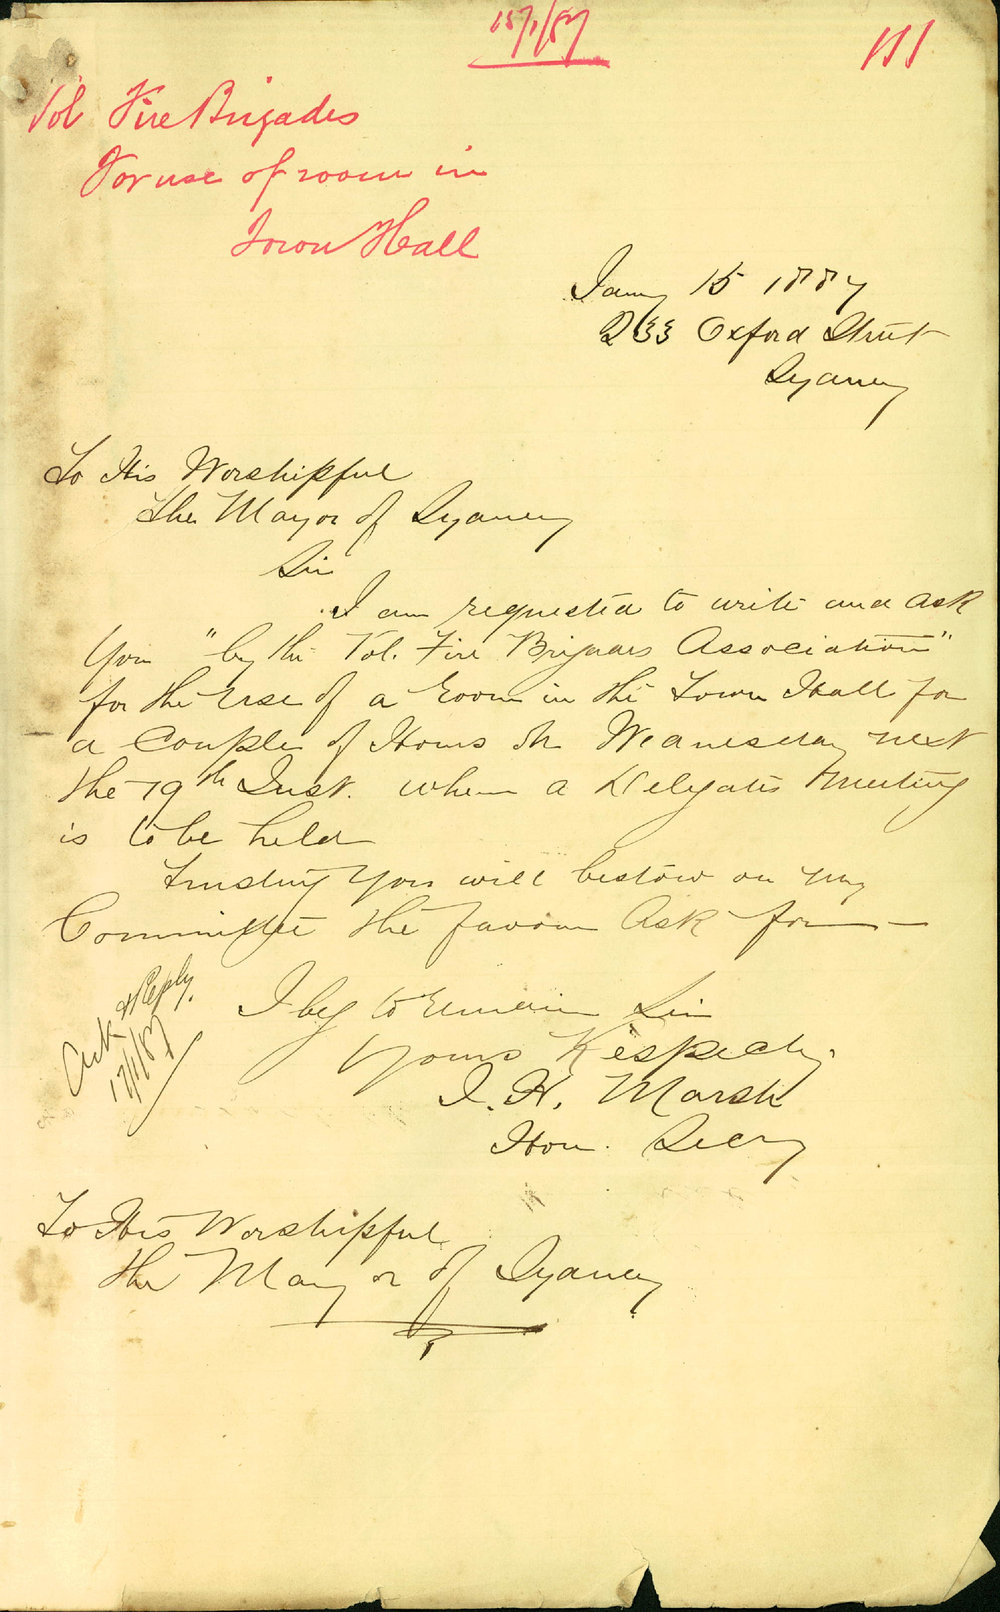 15/1/87
111
Vol Fire Brigades
For use of room in
Town Hall
Jany 15 1887
233 Oxford Street
Sydney
To His Worshipful
The Mayor of Sydney
Sir
I am requested to write and ask
you "by the Vol. Fire Brigades Association"
for the use of a room in the Town Hall for
a Couple of Hours on Wednesday next
the 19th Inst. when a Delegates meeting
is to be held
Trusting you will bestow on my
Committee the favour Ask for —
I beg to remain Sir
Yours Respectly.
J. H. Marsh
Hon. Secry
Ack & Reply.
17/1/87
To His Worshipful
the Mayor of Sydney